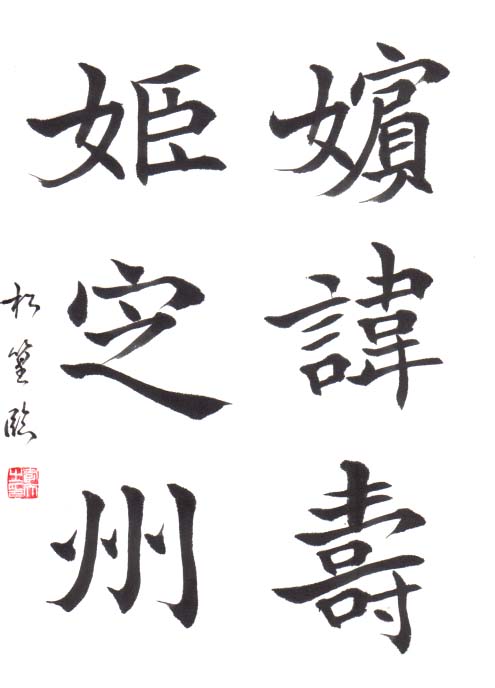 嬪諱壽
姫定州
松篁臨